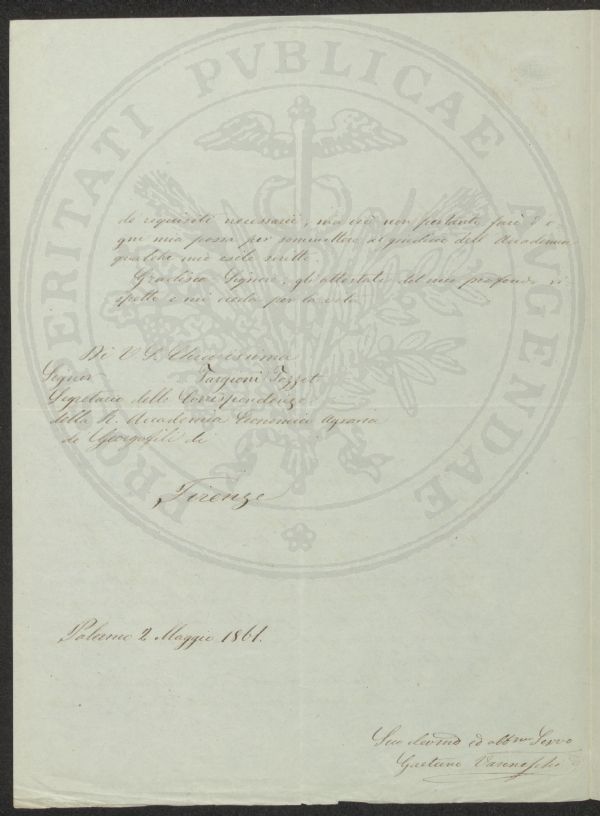 PROSPERITATI PVBLICAE AVGENDAE
de requisiti necessarii, ma ciò non pertanto farò o
gni mia possa per sommettere al giudizio dell' Accademia
qualche mio scritto.
Gradisca Signore, gli attestati del mio profondo ri
spetto e mi creda per la vita
Di V. S. Chiarissima
Signor Targioni Tozzet
Segretario delle Corrispondenze
della R. Accademia Economico Agraria
de Georgofili di
Firenze
Palermo 2 Maggio 1861.
Suo ed obbmo Servo
Gaetano